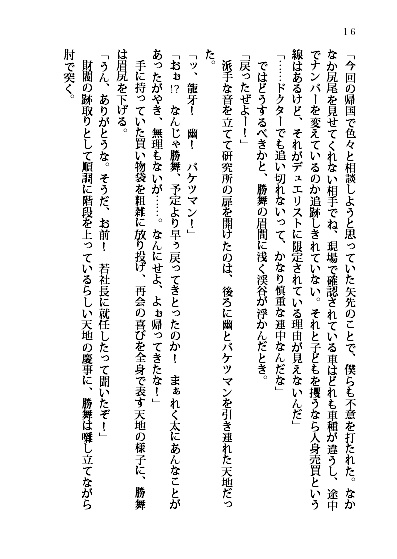 16
「今回の帰国で色々と相談しようと思っていた矢先のことで、僕らも不意を打たれた。なか
なか尻尾を見せてくれない相手でね、現場で確認されている車はどれも車種が違うし、途中
でナンバーを変えているのか追跡しきれていない。それと子どもを攫うなら人身売買という
線はあるけど、それがデュエリストに限定されている理由が見えないんだ」
「……ドクターでも追い切れないって、かなり慎重な連中なんだな」
ではどうするべきかと、勝舞の眉間に浅く渓谷が浮かんだとき。
「戻ったぜよー！」
派手な音を立てて研究所の扉を開けたのは、後ろに繭とバケツマンを引き連れた天地だっ
た。
「ッ、龍牙！　繭！　バケツマン！」
「おぉ!?　なんじゃ勝舞、予定より早う戻ってきとったのか！　まぁれく太にあんなことが
あったがやき、無理もないが……。なんにせよ、よぉ帰ってきたな！」
手に持っていた買い物袋を粗雑に放り投げ、再会の喜びを全身で表す天地の様子に、勝舞
は眉尻を下げる。
「うん、ありがとうな。そうだ、お前！　若社長に就任したって聞いたぞ！」
財閥の跡取りとして順調に階段を上っているらしい天地の慶事に、勝舞は囃し立てながら
肘で突く。